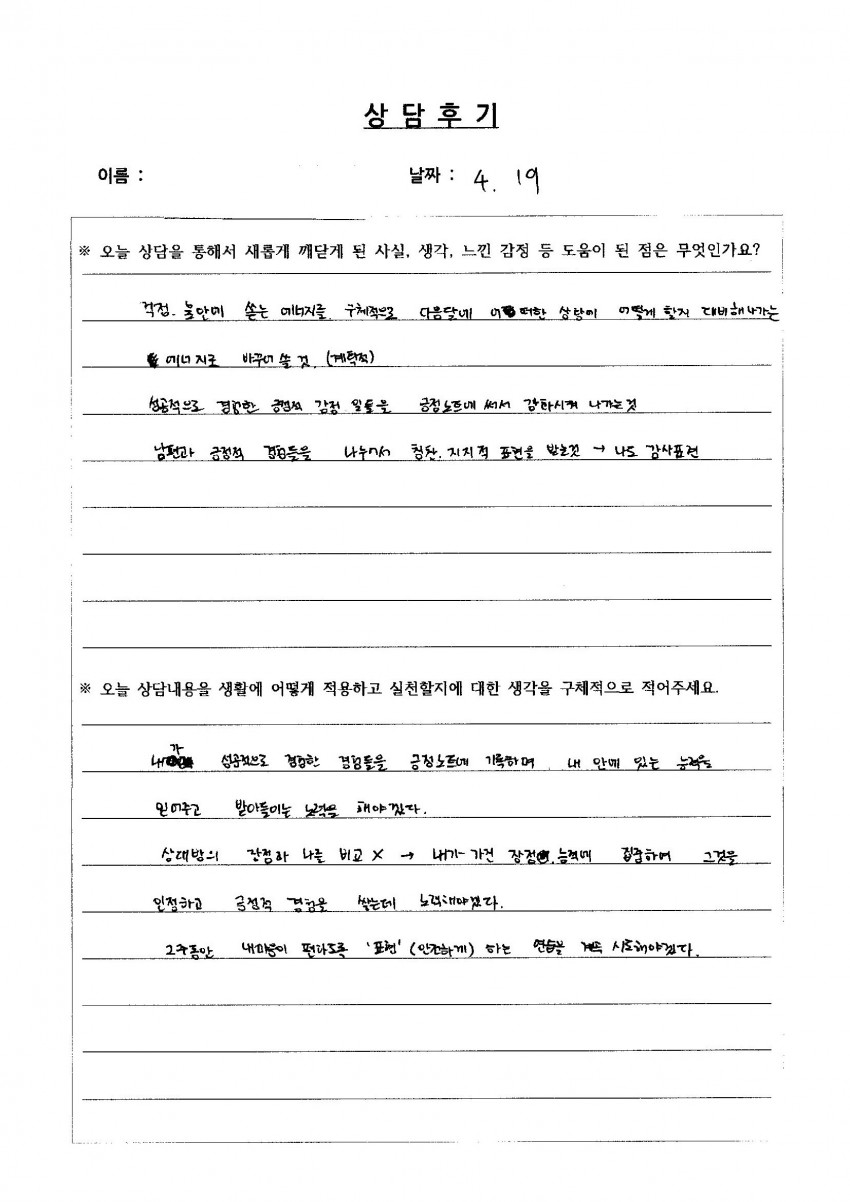 상 담 후 기
이름 :
날짜 : 4. 19
※ 오늘 상담을 통해서 새롭게 깨닫게 된 사실, 생각, 느낀 감정 등 도움이 된 점은 무엇인가요?
걱정. 불안에 쏟는 에너지를 구체적으로 다음달에 어떠한 상황에 어떻게 할지 대비해나가는
에너지로 바꾸어 쓸 것. (계획적)
성공적으로 경험한 긍정적 감정 일들을 긍정노트에 써서 강화시켜 나가는것
남편과 긍정적 경험들을 나누어서 칭찬. 지지적 표현을 받는것 → 나도 감사표현
※ 오늘 상담내용을 생활에 어떻게 적용하고 실천할지에 대한 생각을 구체적으로 적어주세요.
내가 성공적으로 경험한 경험들을 긍정노트에 기록하며 내 안에 있는 능력을
믿어주고 받아들이는 노력을 해야겠다.
상대방의 장점과 나를 비교 X → 내가 가진 장점. 능력에 집중하며 그것을
인정하고 긍정적 경험을 쌓는데 노력해야겠다.
2주동안 내마음이 편하도록 '표현' (안전하게) 하는 연습을 계속 시도해야겠다.